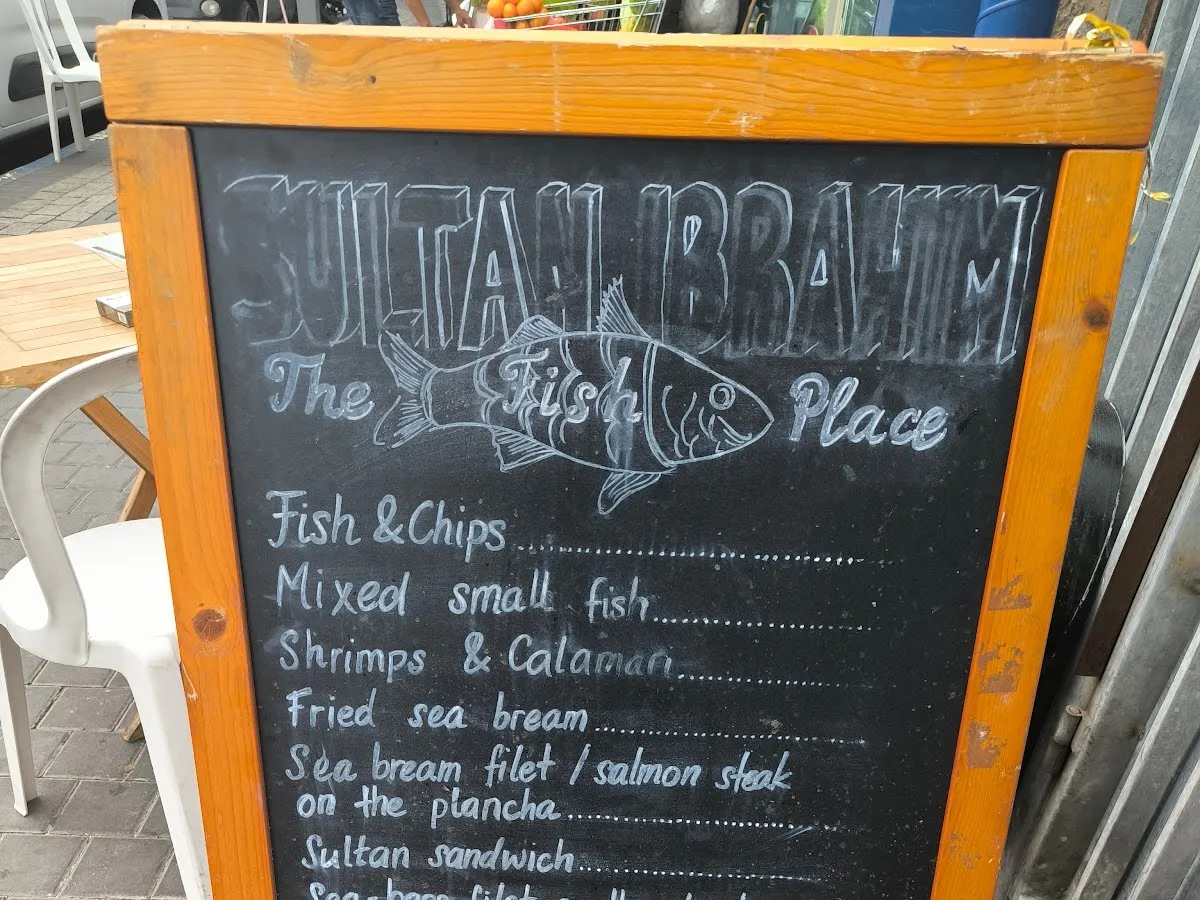 SULTAN IBRAHIM
The Fish Place
Fish & Chips
Mixed small fish
Shrimps & Calamari
Fried sea bream
Sea bream filet / salmon steak
on the plancha
Sultan sandwich
Sea-bass filet